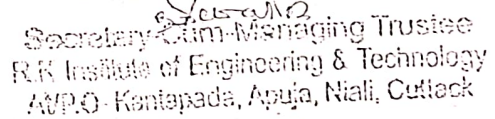 Secretary-Cum-Managing Trustee
R.K Institute of Engineering & Technology
At/P.O- Kantapada, Apuja, Niali, Cuttack